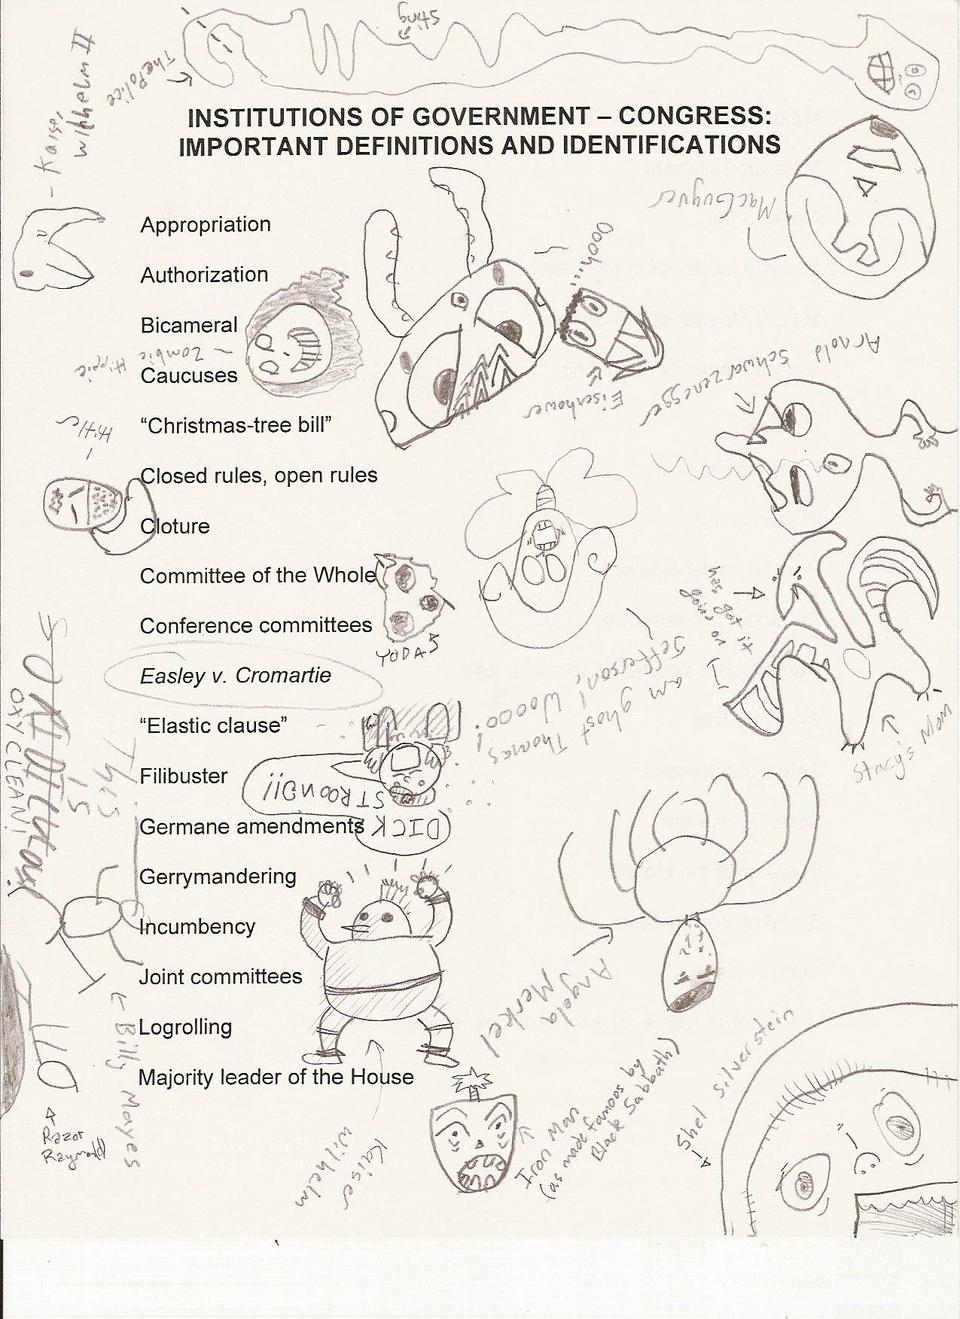 Sting
The Police
Kaiser
Wilhelm II
INSTITUTIONS OF GOVERNMENT – CONGRESS:
IMPORTANT DEFINITIONS AND IDENTIFICATIONS
MacGuyver
Appropriation
Oooh...
Authorization
Bicameral
Zombie Hippie
Caucuses
Eisenhower
Arnold Schwarzenegger
Hitler
“Christmas-tree bill”
Closed rules, open rules
Cloture
Committee of the Whole
Conference committees
YODAS
has got it
goins on
Stacy's Mom
I am ghost Thomas
Jefferson! Woooo!
Easley v. Cromartie
“Elastic clause”
Filibuster
STROONG!!
Germane amendments
DICK
Gerrymandering
Incumbency
Joint committees
Logrolling
Majority leader of the House
This
is
OXYCLEAN!
Billy Mayes
Razor
Raymond
Kaiser
Wilhelm
Angela
Merkel
Iron Man
(as made famous by
Black Sabbath)
Shel Silverstein